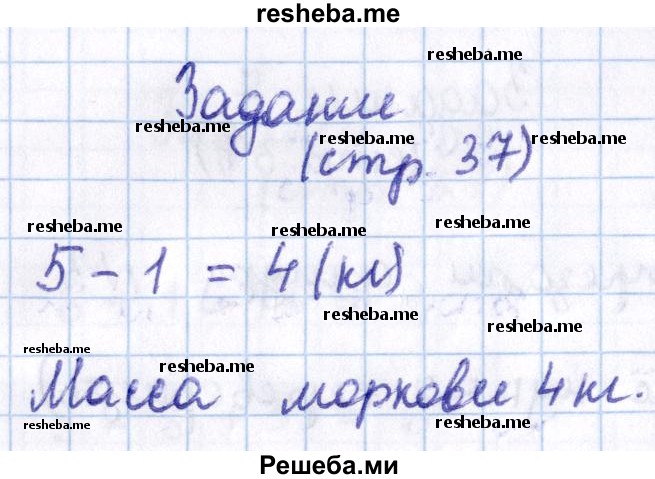 resheba.me
resheba.me
Задание
resheba.me
(стр. 37)
resheba.me
resheba.me
resheba.me
resheba.me
resheba.me
5 - 1 = 4 (кг)
resheba.me
resheba.me
resheba.me
resheba.me
Масса моркови 4 кг.
resheba.me
resheba.me
Решеба.ми